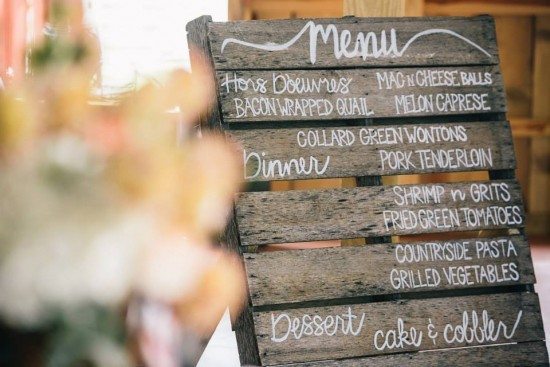 Menu
Hors Doeuvres MAC n CHEESE BALLS
BACON WRAPPED QUAIL MELON CAPRESE
COLLARD GREEN WONTONS
Dinner PORK TENDERLOIN
SHRIMP n GRITS
FRIED GREEN TOMATOES
COUNTRYSIDE PASTA
GRILLED VEGETABLES
Dessert cake & cobbler